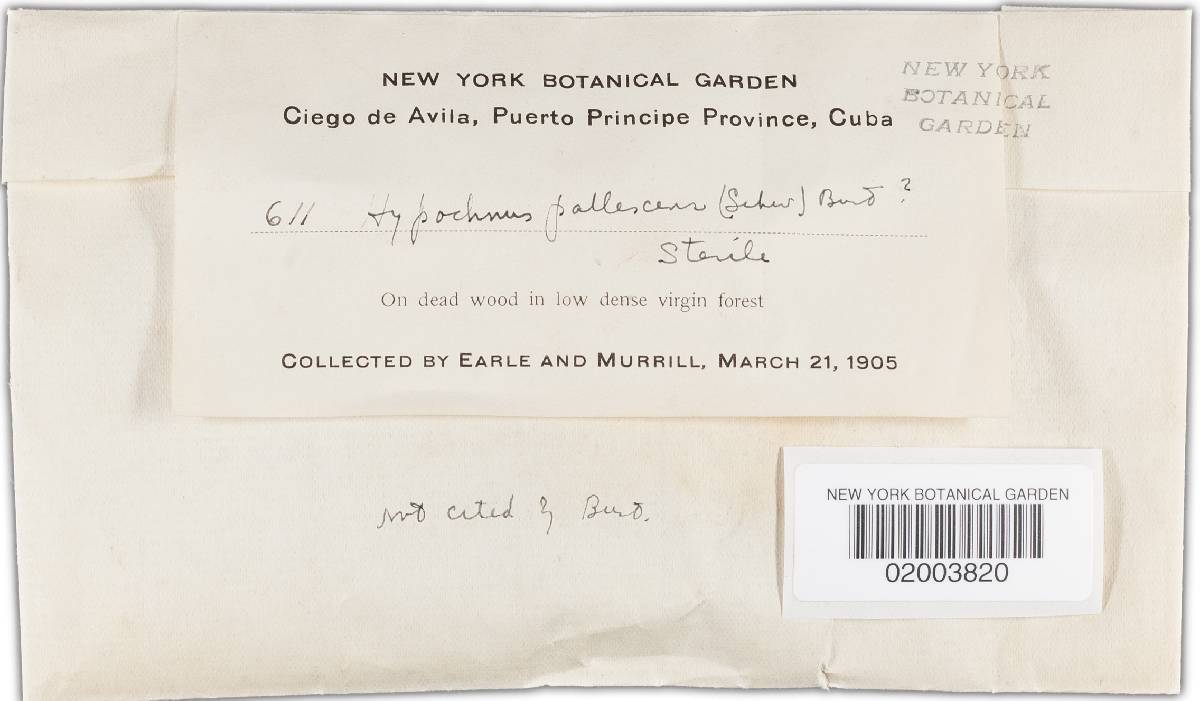 NEW YORK BOTANICAL GARDEN
Ciego de Avila, Puerto Principe Province, Cuba
NEW YORK
BOTANICAL
GARDEN
611 Hypochnus pallescens (Schw) Burt ?
Sterile
On dead wood in low dense virgin forest
COLLECTED BY EARLE AND MURRILL, MARCH 21, 1905
not cited by Burt.
NEW YORK BOTANICAL GARDEN
02003820